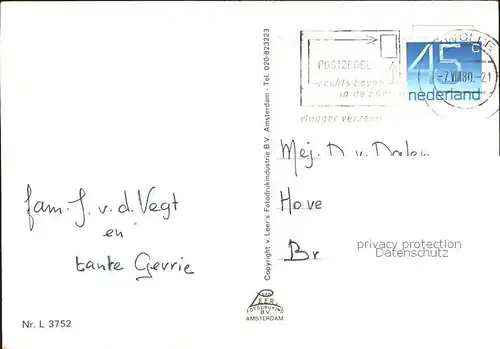 fam. J. v. d. Vegt
en
tante Gerrie
Nr. L 3752
Copyright v. Leer's Fotodrukindustrie B.V. Amsterdam - Tel. 020-823223
VAN LEER
FOTODRUKIND
B.V.
AMSTERDAM
POSTZEGEL
rechts boven
in de
vlugger
ZWOLLE
45c
nederland
Mej. D. v. Dalen
Hove
Br
privacy protection
Datenschutz